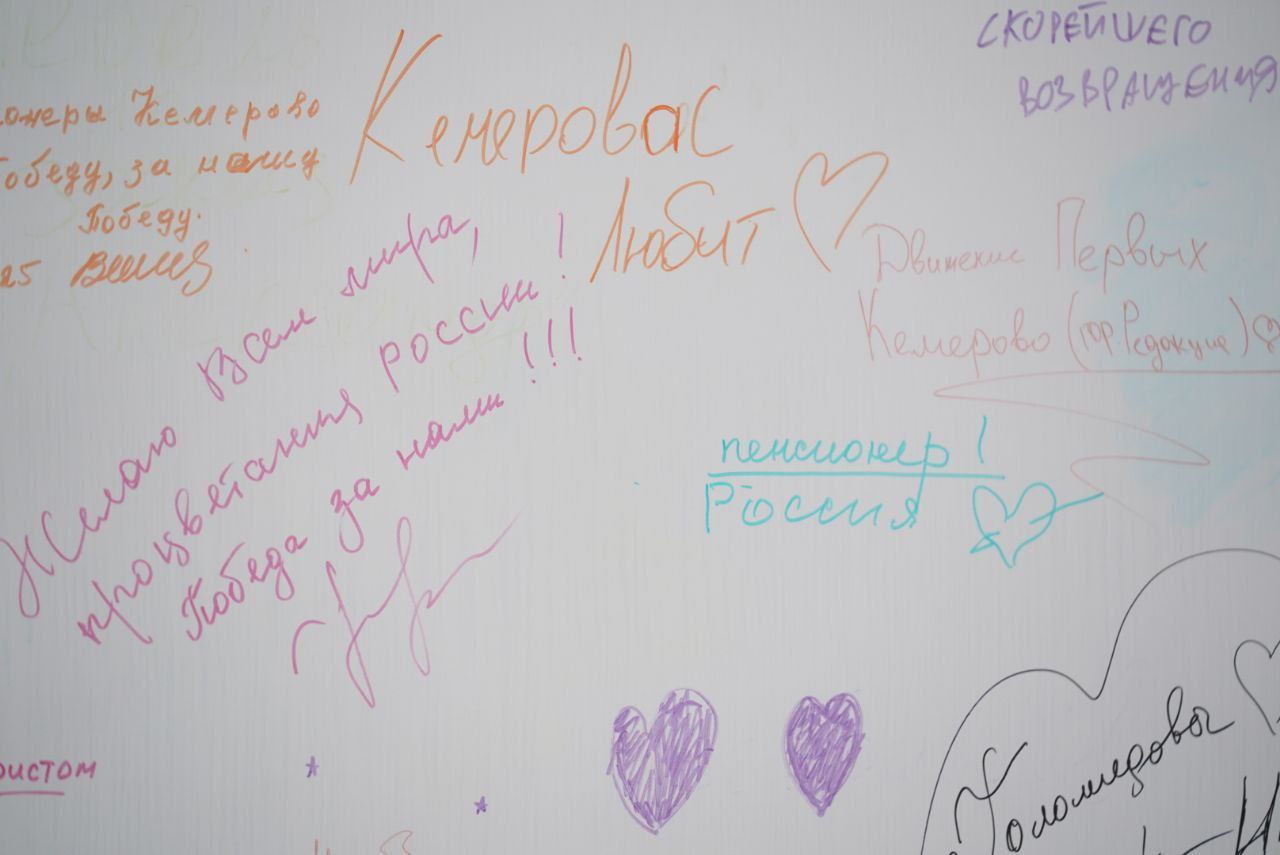 СКОРЕЙШЕГО
ВОЗВРАЩЕНИЯ
онеры Кемерово
Победу, за нашу
Победу.
КемероваС
Любит
Желаю всем мира,
процветания россии!!
Победа за нами!!!
Движение Первых
Кемерово (гор. Редакция)
пенсионер!
Россия
ристом